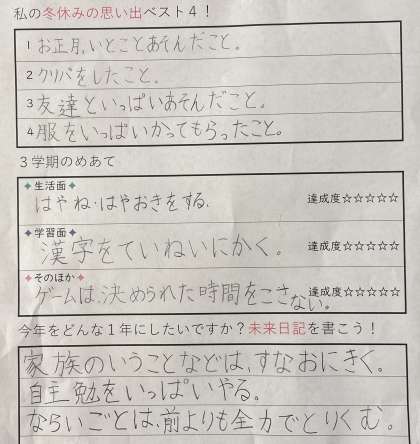 私の冬休みの思い出ベスト４！
1 お正月、いとことあそんだこと。
2 クリパをしたこと。
3 友達といっぱいあそんだこと。
4 服をいっぱいかってもらったこと。
３学期のめあて
✦生活面✦
はやね・はやおきをする。 達成度☆☆☆☆☆
✦学習面✦
漢字をていねいにかく。 達成度☆☆☆☆☆
✦そのほか✦
ゲームは、決められた時間をこさない。 達成度☆☆☆☆☆
今年をどんな１年にしたいですか？未来日記を書こう！
家族のいうことなどは、すなおにきく。
自主勉をいっぱいやる。
ならいごとは、前よりも全力でとりくむ。